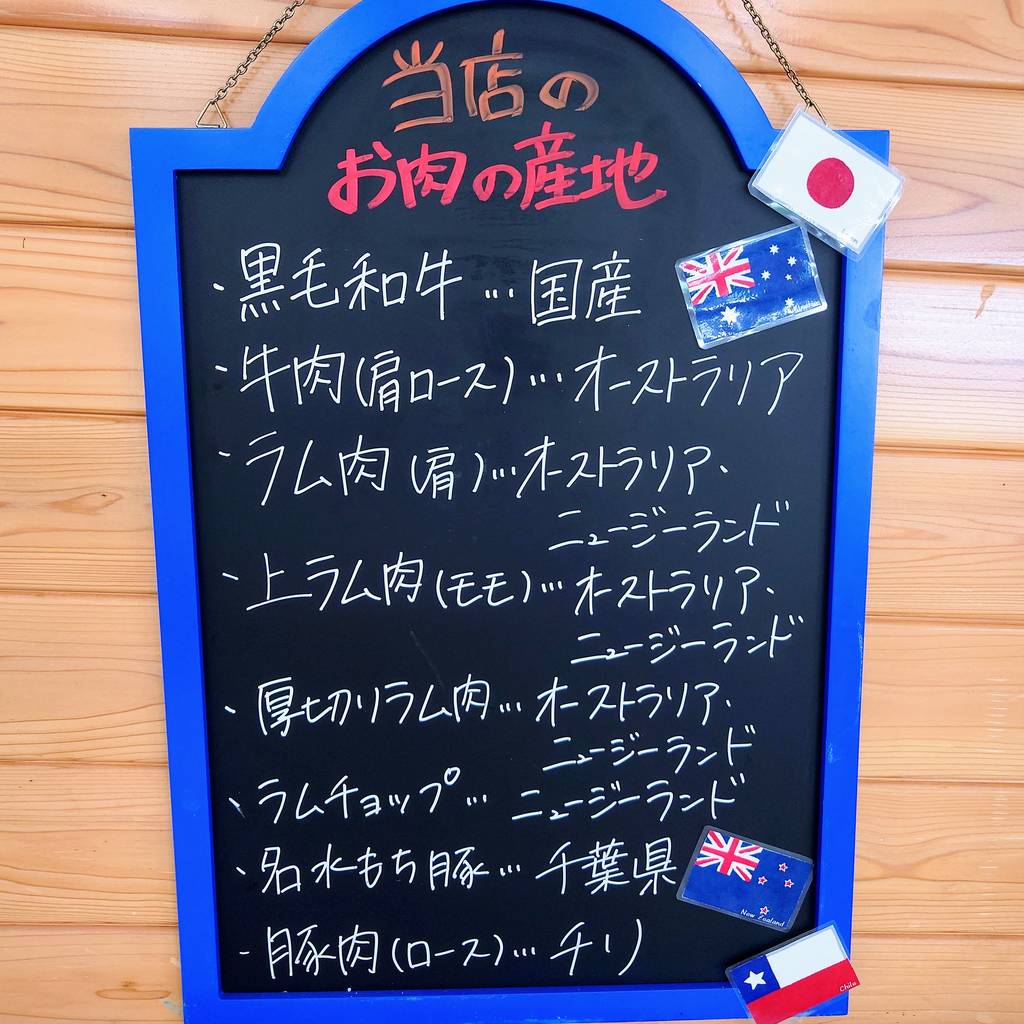 当店の
お肉の産地
・黒毛和牛…国産
・牛肉(肩ロース)…オーストラリア
・ラム肉(肩)…オーストラリア、
ニュージーランド
・上ラム肉(モモ)…オーストラリア、
ニュージーランド
・厚切りラム肉…オーストラリア、
ニュージーランド
・ラムチョップ…ニュージーランド
・名水もち豚…千葉県
・豚肉(ロース)…チリ
New Zealand
Chile